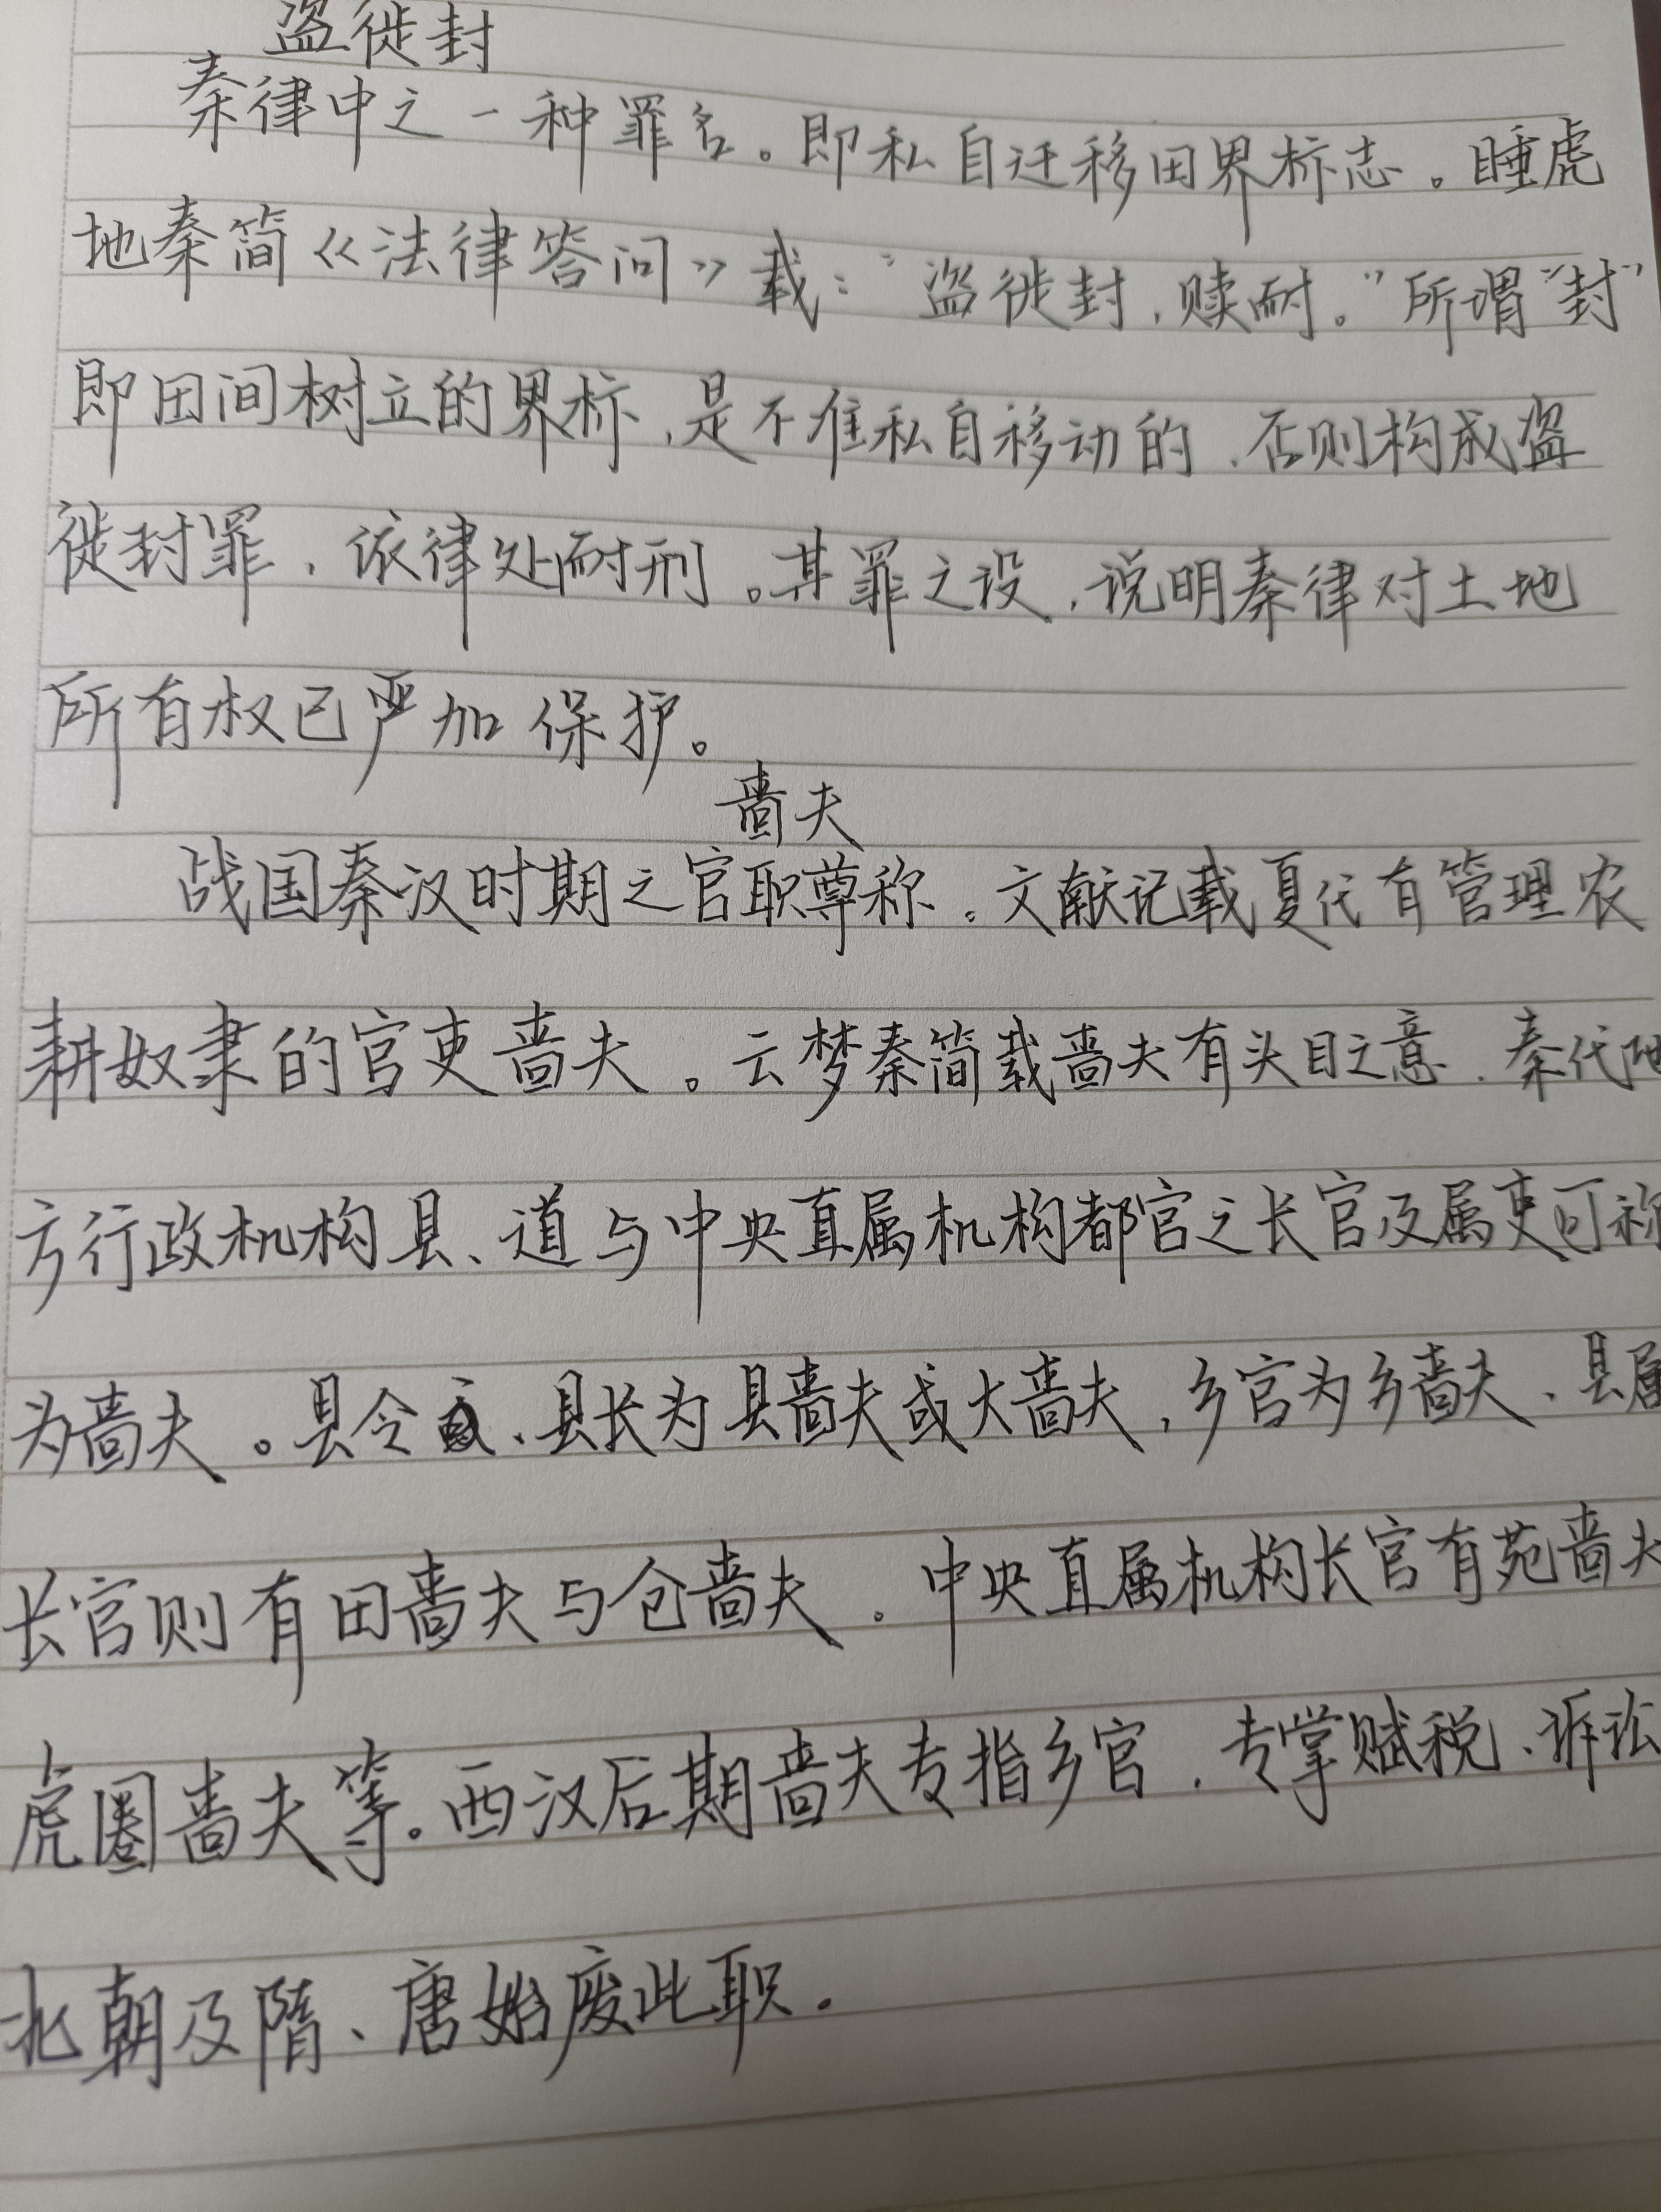 盗徙封
秦律中之一种罪名。即私自迁移田界标志。睡虎
地秦简《法律答问》载："盗徙封，赎耐。"所谓"封"
即田间树立的界标，是不准私自移动的，否则构成盗
徙封罪，依律处耐刑。其罪之设，说明秦律对土地
所有权已严加保护。
啬夫
战国秦汉时期之官职尊称。文献记载夏代有管理农
耕奴隶的官吏啬夫。云梦秦简载啬夫有头目之意，秦代地
方行政机构县、道与中央直属机构都官之长官及属吏可称
为啬夫。县令、县长为县啬夫或大啬夫，乡官为乡啬夫、县属
长官则有田啬夫与仓啬夫。中央直属机构长官有苑啬夫
虎圈啬夫等。西汉后期啬夫专指乡官，专掌赋税、诉讼
北朝及隋、唐始废此职。